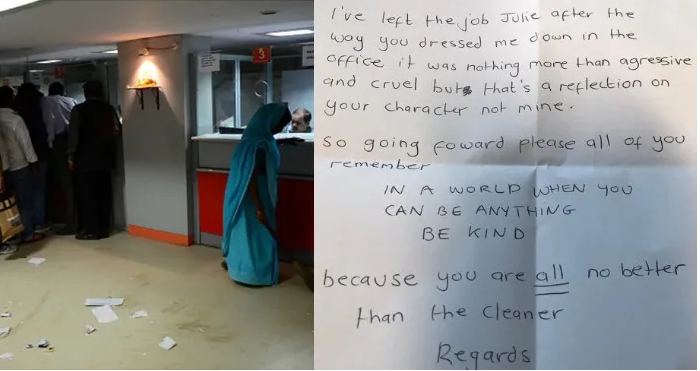 3
I've left the job Julie after the
way you dressed me down in the
office it was nothing more than agressive
and cruel but that's a reflection on
your character not mine.
so going foward please all of you
remember
IN A WORLD WHEN YOU
CAN BE ANYTHING
BE KIND
because you are all no better
than the cleaner
Regards